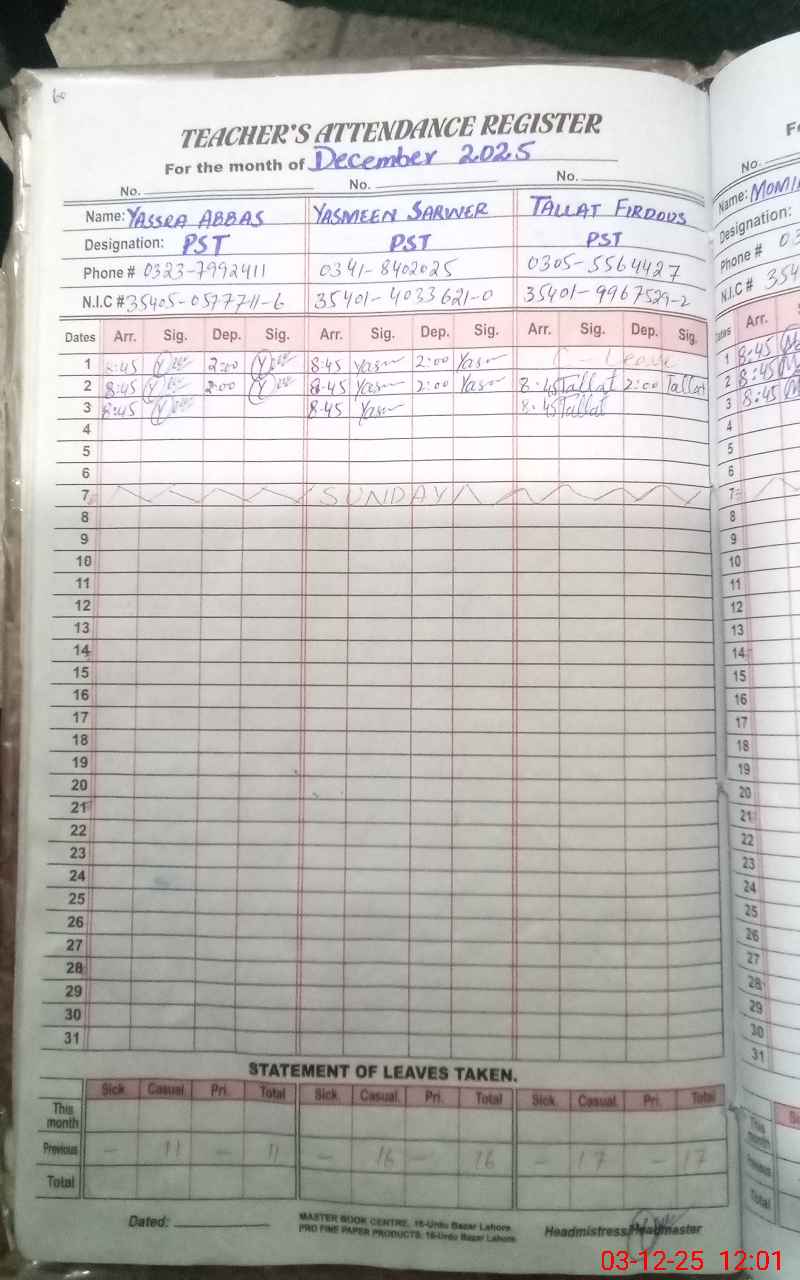 60
TEACHER'S ATTENDANCE REGISTER
For the month of December 2025
No. No. No.
Name: YASSRA ABBAS YASMEEN SARWER TALLAT FIRDOUS
Designation: PST PST PST
Phone # 0323-7992411 0341-8402025 0305-5564427
N.I.C # 35405-0577711-6 35401-4033621-0 35401-9967529-2
Dates Arr. Sig. Dep. Sig. Arr. Sig. Dep. Sig. Arr. Sig. Dep. Sig.
1 8:45 2:00 8:45 Yasm 2:00 Yasm C-Leave
2 8:45 2:00 8:45 Yasm 2:00 Yasm 8:45 Tallat 2:00 Tallat
3 8:45 8:45 Yasm 8:45 Tallat
4
5
6
7 SUNDAY
8
9
10
11
12
13
14
15
16
17
18
19
20
21
22
23
24
25
26
27
28
29
30
31
STATEMENT OF LEAVES TAKEN.
Sick. Casual. Pri. Total Sick. Casual. Pri. Total Sick. Casual. Pri. Total
This month
Previous - 11 - 11 - 16 - 16 - 17 - 17
Total
Dated:
MASTER BOOK CENTRE, 16-Urdu Bazar Lahore.
PRO FINE PAPER PRODUCTS, 16-Urdu Bazar Lahore.
Headmistress/Headmaster
No.
Name:
Designation:
Phone #
N.I.C #
Dates Arr.
1 8:45
2 8:45
3 8:45
4
5
6
7
8
9
10
11
12
13
14
15
16
17
18
19
20
21
22
23
24
25
26
27
28
29
30
31
This month
Previous
Total
03-12-25 12:01